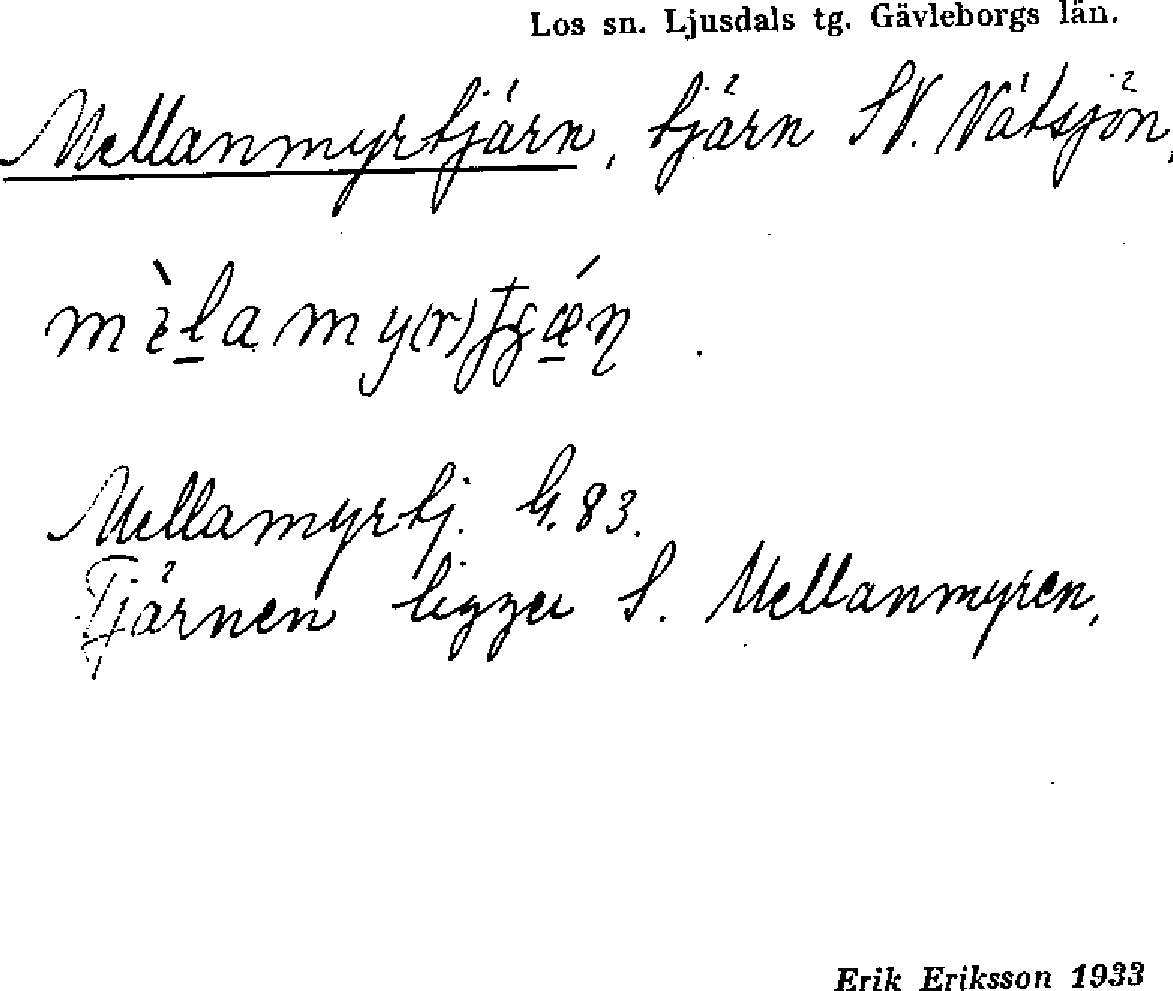 Los sn. Ljusdals tg. Gävleborgs län.
Mellanmyrtjärn, tjärn SV. Nätsjön,
Mellamyrtj. G. 83.
Tjärnen ligger S. Mellanmyren,
Erik Eriksson 1933